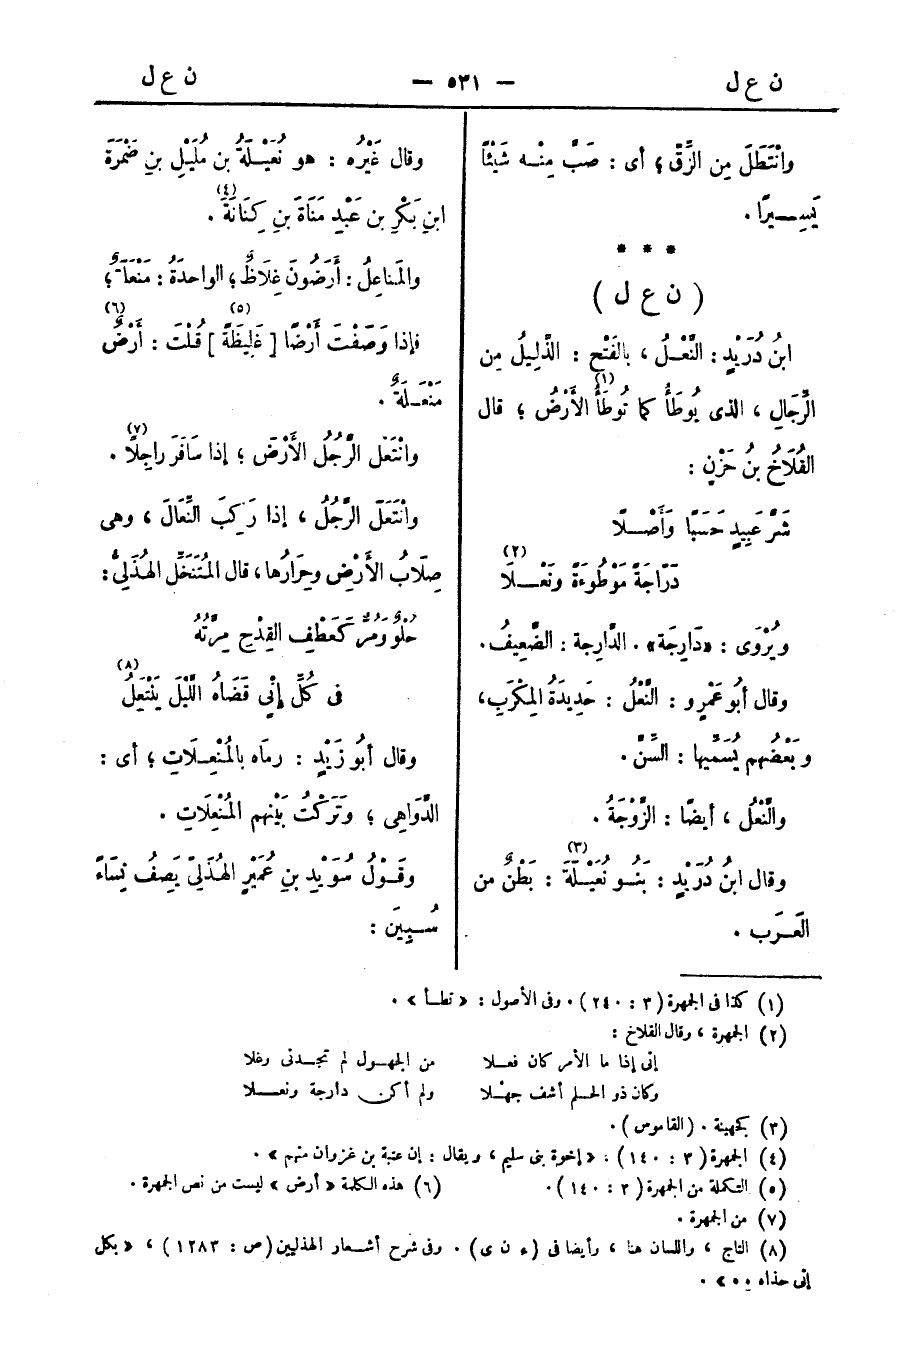 ن ع ل
— ٥٣١ —
ن ع ل
وانْتَطَلَ مِن الزِّقّ ؛ أى : صَبَّ مِنْـه شَيْئاً
يَسِــيرًا .
* * *
( ن ع ل )
ابنُ دُرَيْدٍ : النَّعْـلُ ، بالفَتْحِ : الذَّلِيلُ مِن
الرِّجَالِ ، الذى يُوطَأُ كما تُوطَأُ (١) الأَرْضُ ؛ قال
القُلَاخُ بنُ حَزْنٍ :
شَرّ عَبِيدٍ حَسَبًا وَأَصْــلًا
دَرَّاجَةً مَوْطُوءَةً ونَعْــلًا (٢)
ويُرْوَى : «دَارِجَة» . الدّارِجة : الضَّعِيفُ .
وقال أبُو عَمْرٍو : النَّعْلُ : حَدِيدَةُ المِكْرَبِ ،
وبَعْضُهم يُسَمِّيها : السِّنَّ .
والنَّعْلُ ، أيضًا : الزَّوْجَةُ .
وقال ابنُ دُرَيْدٍ : بَنُــو نُعَيْــلَةَ (٣) : بَطْنٌ من
العَــرَب .
وقال غَيْرُه : هو نُعَيْــلَةُ بن مُلَيْلِ بنِ ضَمْرَةَ
ابنِ بَكْرِ بن عَبْدِ مَنَاةَ بنِ كِنَانَةَ (٤) .
والمَناعِلُ : أَرَضُونَ غِلَاظٌ ؛ الواحدَةُ : مَنْعَلَةٌ ؛
فإذا وَصَفْتَ أَرْضًا [ غَلِيظَةً ] (٥) قُلْتَ : أَرْضٌ (٦)
مَنْعَــلَةٌ .
وانْتَعَل الرَّجُلُ الأَرْضَ ؛ إذا سَافَرَ راجِلًا (٧) .
وانْتَعَلَ الرَّجُلُ ، إذا رَكِبَ النِّعَالَ ، وهى
صِلَابُ الأَرْضِ وحِرَارُها ، قال المُتَنَخِّل الهُذَلِىُّ :
حُلْوٌ ومُرٌّ كَعَطْفِ القِدْحِ مِرَّتُهُ
فى كُلِّ إِنْيٍ قَضَاهُ اللَّيْلَ يَنْتَعِلُ (٨)
وقال أبُو زَيْدٍ : رماه بالمُنْعِــلَاتِ ؛ أى :
الدَّوَاهِى ؛ وتَرَكْتُ بَيْنهم المُنْعِلَاتِ .
وقَــوْلُ سُوَيْدِ بنِ عُمَيْرٍ الهُذَلِىّ يَصِفُ نِسَاءً
سُــبِينَ :
(١) كذا فى الجمهرة (٣ : ٢٤٠) . وفى الأصول : « تطــأ » .
(٢) الجمهرة ، وقال القلاخ :
إنى إذا ما الأمر كان فعــلا من الجهــول لم تجــدنى وغلا
وكان ذو الحــلم أشف جهْـلا ولم أكن دارجة ونعــــلا
(٣) كجهينة . (القاموس) .
(٤) الجمهرة (٣ : ١٤٠) : « إخوة بنى سليم ، ويقال : إن عتبة بن غزوان منهم » .
(٥) التكملة من الجمهرة (٣ : ١٤٠) . (٦) هذه الكلمة « أرض » ليست من نص الجمهرة .
(٧) من الجمهرة .
(٨) التاج ، واللسان هنا ، وأيضا فى (ء ن ى) . وفى شرح أشــعار الهذليين (ص : ١٢٨٣) ، « بكل
إنى حذاه .. » .